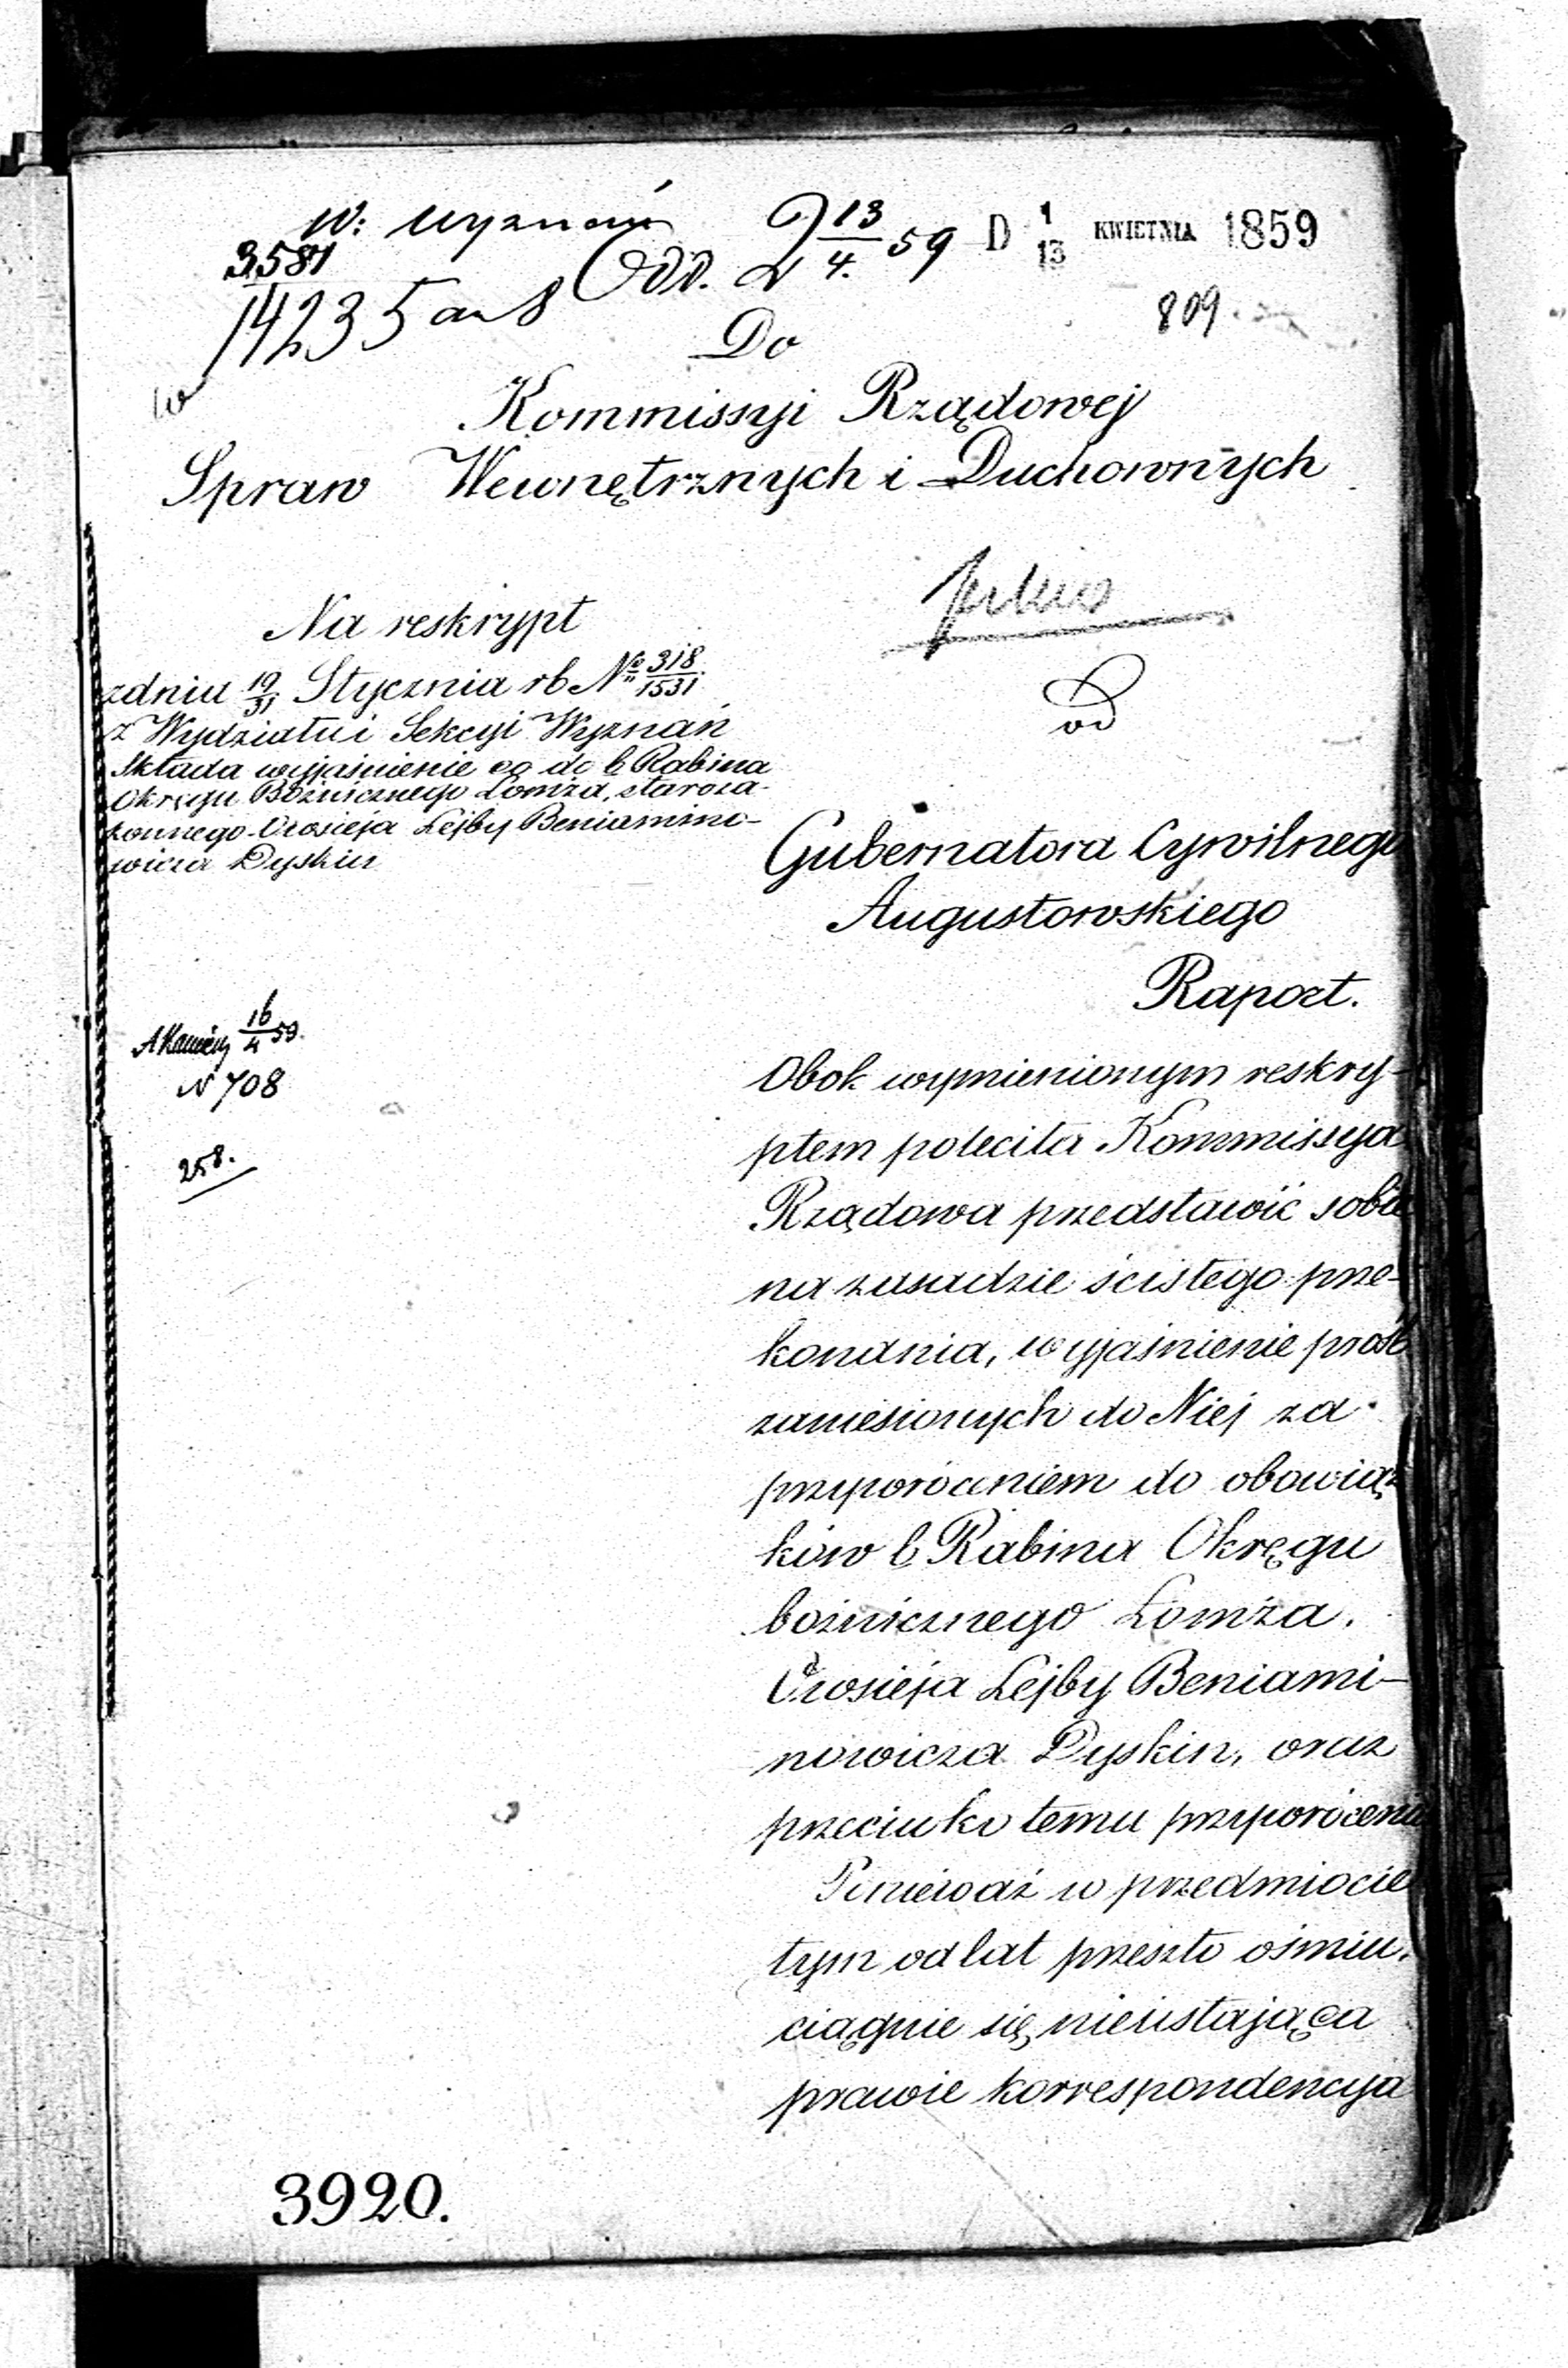 W: Wyznań
Odd. 2 13/4. 59
D 1/13 KWIETNIA 1859
3581
14235
809
Do
Kommissyi Rządowej
Spraw Wewnętrznych i Duchownych
Na reskrypt
zdniu 19/31 Stycznia rb No 318/1531
z Wydziału i Sekcyi Wyznań
składa wyjaśnienie co do b Rabina
Okręgu Bóżnicznego Łomża, staroza-
konnego Owsieja Lejby Beniamino-
wicza Dyskin
od
Gubernatora Cywilnego
Augustowskiego
Raport.
16/4 59.
N 708
258.
Obok wymienionym reskry-
ptem poleciła Kommissya
Rządowa przedstawić sobie
na zasadzie ścisłego prze-
konania, wyjaśnienie prośb
zaniesionych do Niej za
przywróceniem do obowiąz
ków b Rabina Okręgu
bożnicznego Łomża.
Owsieja Lejby Beniami-
nowicza Dyskin, oraz
przeciwko temu przywróceniu
Ponieważ w przedmiocie
tym od lat przeszło ośmiu,
ciągnie się nieustająca
prawie korrespondencya
3920.